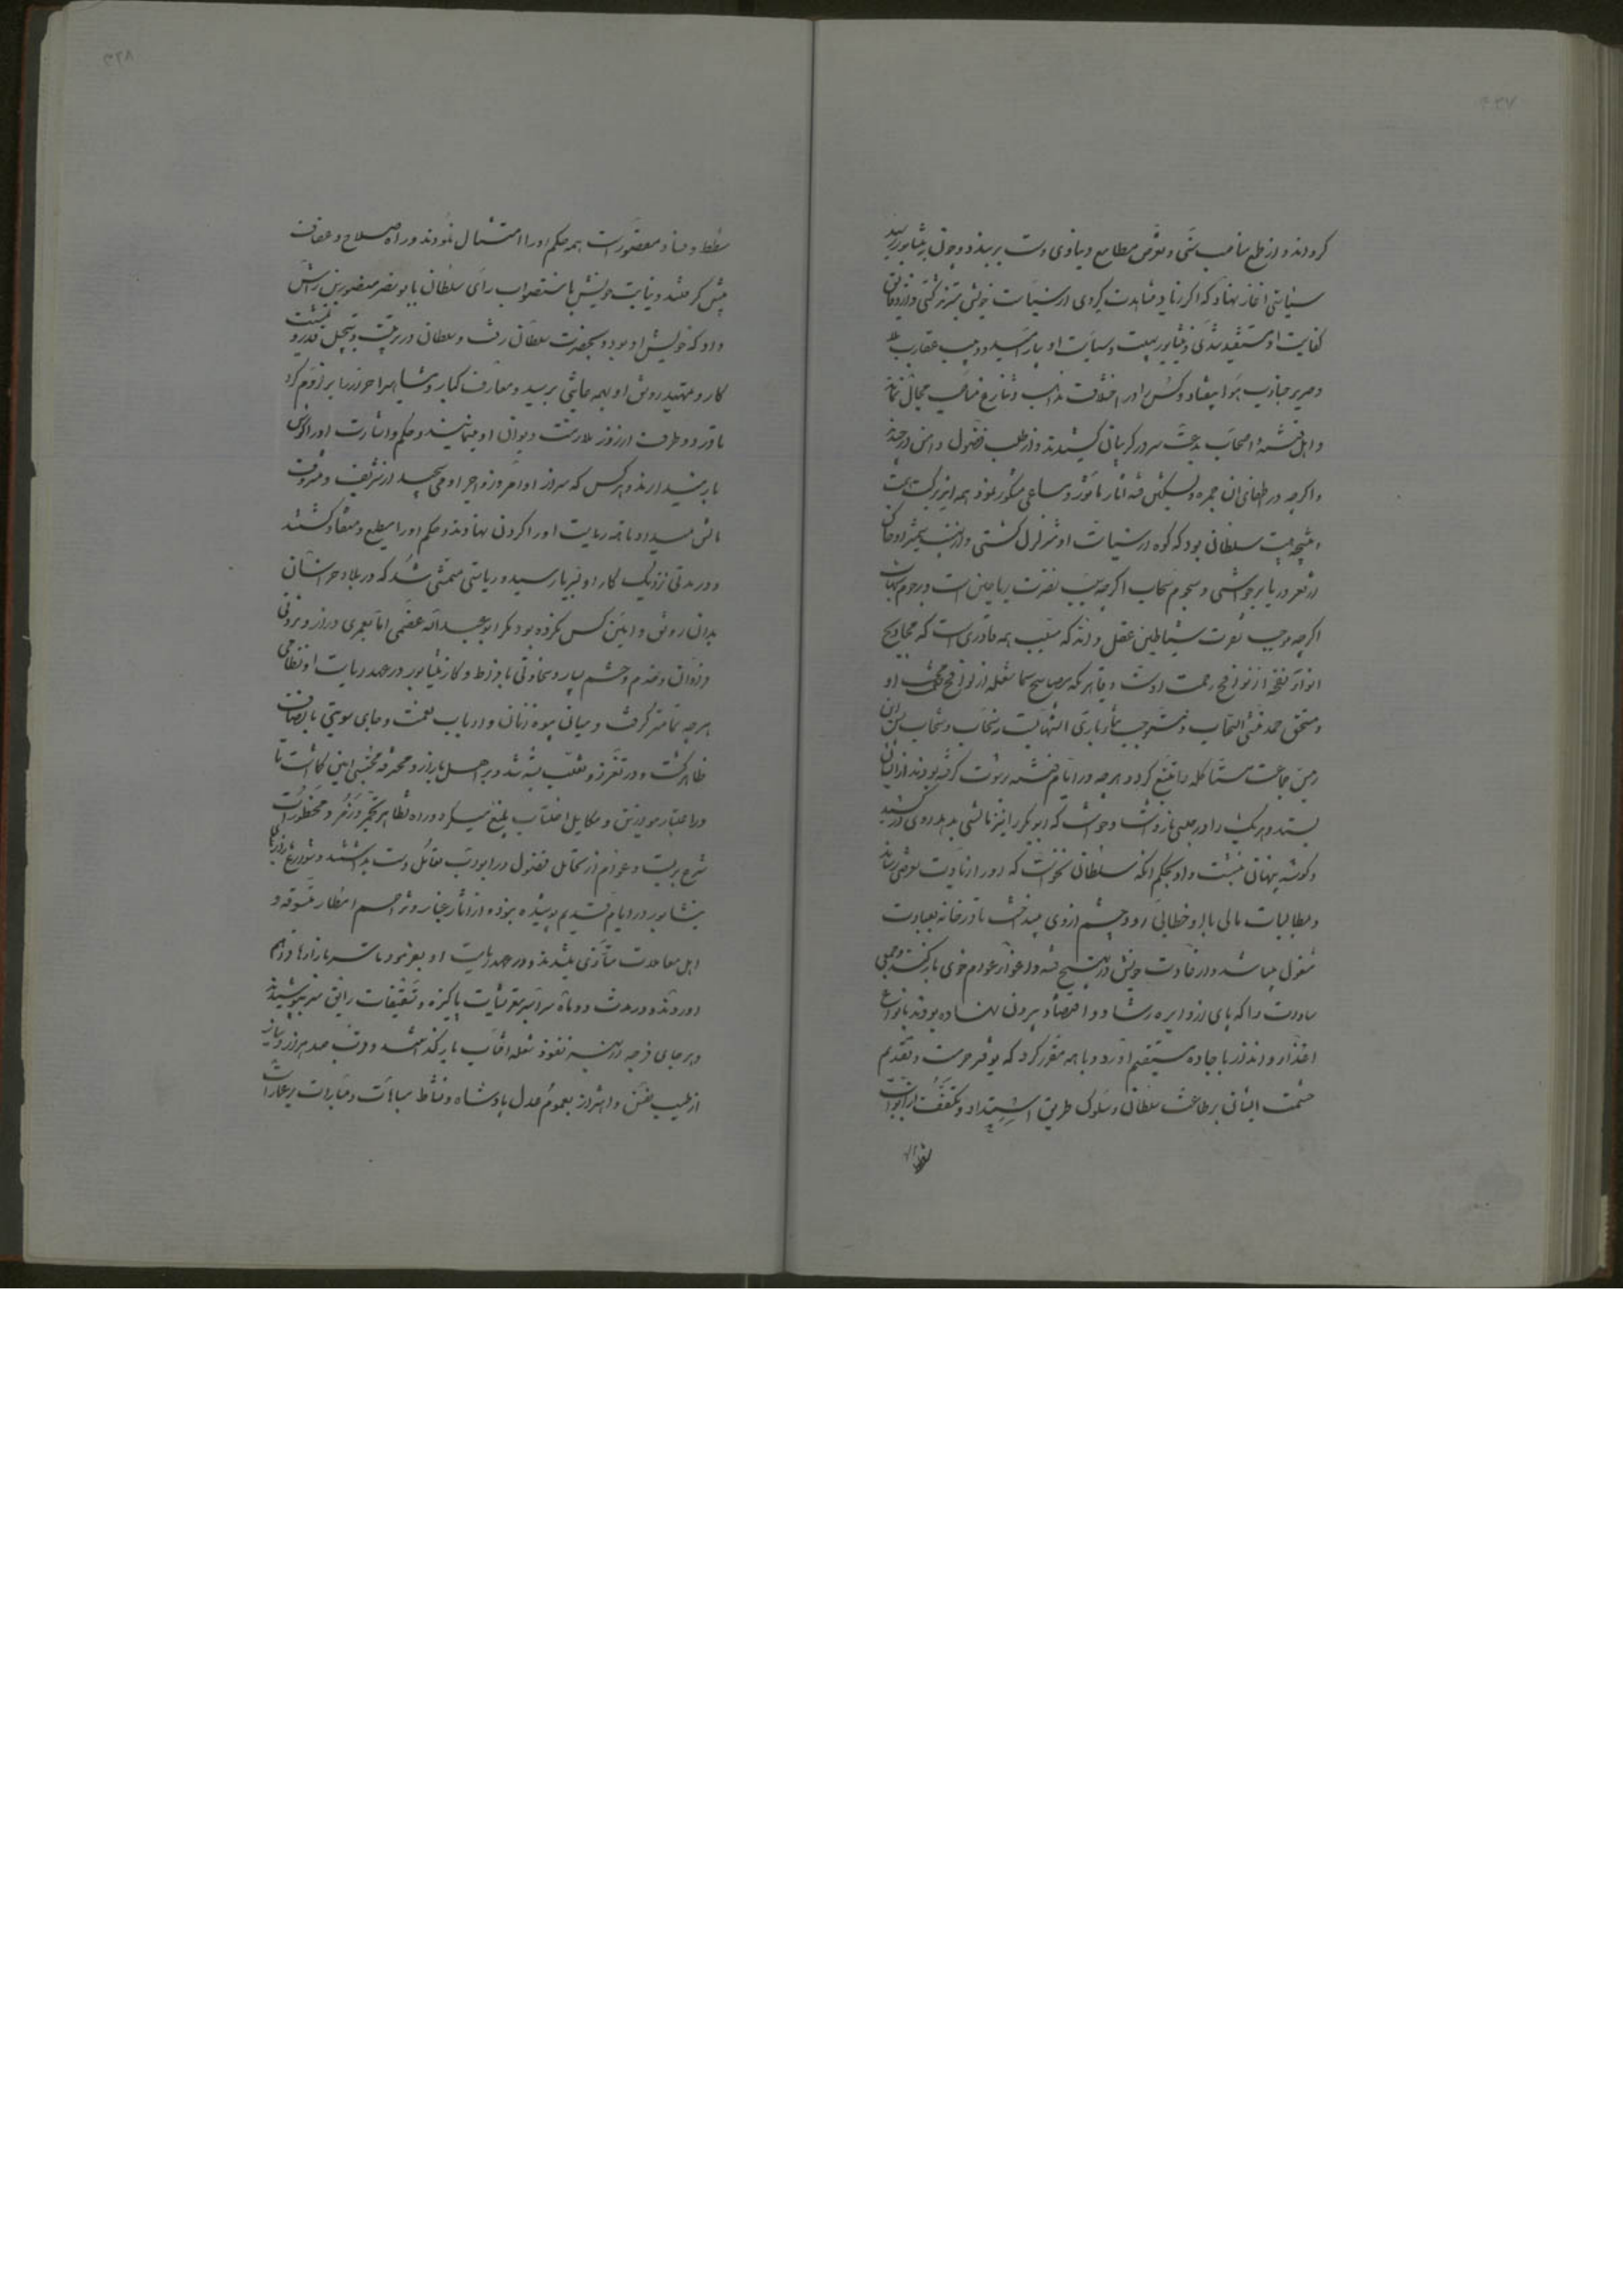 کرداند و از طمع مناصب شتی و تعرض مطامع دنیاوی دست ببرید و چون بنیشابور رسید
سیاستی آغاز نهاد که اگر زیاد مشاهدت کردی از سیاست خویش متبرز گشتی و از دقایق
کفایت او مستفید شدی و نیشابور بهیبت و سیاست او بیارامید و دبیب عقارب بلا
و صریر جنادب هوا بیفتاد و کس را در اختلاف مذاهب و تنازع مناصب مجال نماند
و اهل فتنه و اصحاب بدعت سر در گریبان کشیدند و از طلب فضول دامن در چیدند
و اگرچه در اطفای آن جمره و تسکین فتنه آثار ماثور و مساعی مشکور نمود همه از برکت هیبت
و نتیجه هیبت سلطانی بود که کوه از سیاست او متزلزل گشتی و از نهیب شمشیر او خاک
از قعر دریا بر جوشی و سجوم سحاب اگرچه سبب نضرت ریاحین است و رجوم شهاب
اگرچه موجب ثبور شیاطین عقل داند که مسبب همه قادری است که مجادیح
انوار نفحه از نوافح رحمت اوست و قاهری که مصابیح سما شعله از لوافح خشم او
و مستحق حمد منشی السحاب و مستوجب باریاری التهابست نه سحاب و شهاب پس از آن
زمین جماعت متشاکله را تتبع کرد و هرچه در ایام فتنه برشوت گرفته بودند از ایشان
بستد و هریک را در حبس باز داشت و خواست که ابوبکر را نیز مالشی بدهد روی در کشید
و گوشه پنهانی بنشست و او بحکم آنکه سلطان نخواست که او را زیادت تعرضی رساند
و بمطالبات مالی با او خطابی رود چشم از وی پوشید تا در خانه بعبادت
مشغول میباشد و از عادت خویش در تهییج فتنه و اغوای عوام خوی باز کند و جمعی
سادات را که پای از دایره رشاد و اقتصاد بیرون نهاده بودند بانواع
اعذار و انذار با جاده مستقیم آورد و با همه مقرر کرد که توفیر حرمت و تقدیم
حشمت ایشان بر طاعت سلطان و سلوک طریق استبداد و تعفف از ابواب
سطط و عناد مقصور است همه حکم او را امتثال نمودند و راه صلاح و عفاف
پیش گرفتند و نیابت خویش باستصواب رأی سلطان بابونصر منصور بن رامش
داد که خویش او بود و بحضرت سلطان رفت و سلطان در تربیت و تبجیل قدر و تمشیت
کار و تمهید رونق او بهمه غایتی برسید و معارف کبار و مشاهیر احرار را بر آن لزوم کرد
تا در دو طرف از روز ملازمت دیوان او مینمایند و حکم و اشارت او را گوش
باز میدارند و هرکس که سر از اوامر و زواجر او می پیچید از شریف و مشروف
مالش میداد تا همه ریاست او را گردن نهادند و حکم او را مطیع و منقاد گشتند
و در مدتی نزدیک کار او بثریا رسید و ریاستی متمشی شد که در بلاد خراسان
بدان رونق و آیین کس نکرده بود مگر ابوعبدالله عصمی اما بعمری دراز و ثروتی
فراوان و خدم و حشم بسیار و سخاوتی بافراط و کار نیشابور در عهد ریاست او نظامی
هرچه تمامتر گرفت و میان بیوه زنان و ارباب نعمت و جاه سویتی بانصاف
ظاهر گشت و در تعزز و تغلب بسته شد و بر اهل بازار و محترفه محتسبی امین گماشت تا
در اعتبار موازین و مکاییل احتساب بلیغ میکرد و راه تظاهر بخمر و زمر و محظورات
شرع بربست و عوام از تحامل فضول در ابواب تقاتل دست بداشتند و شوارع بازارها
نیشابور در ایام قدیم پوشیده نبوده از آثار غبار و تراحم امطار متسوقه و
اهل معاملت متأذی میشدند و در عهد ریاست او بفرمود تا سر بازارها فراهم
آوردند و در مدت دو ماه سراسر بعرشات پاکیزه و تسقیفات رایق منیر بپوشیدند
و بر جای فرجه از بهر نفوذ شعله آفتاب باز گذاشتند و قرب صد هزار دینار
از طیب نفس و اهتزاز بعموم عدل پادشاه و نشاط مباهات و مبارات بر عمارات